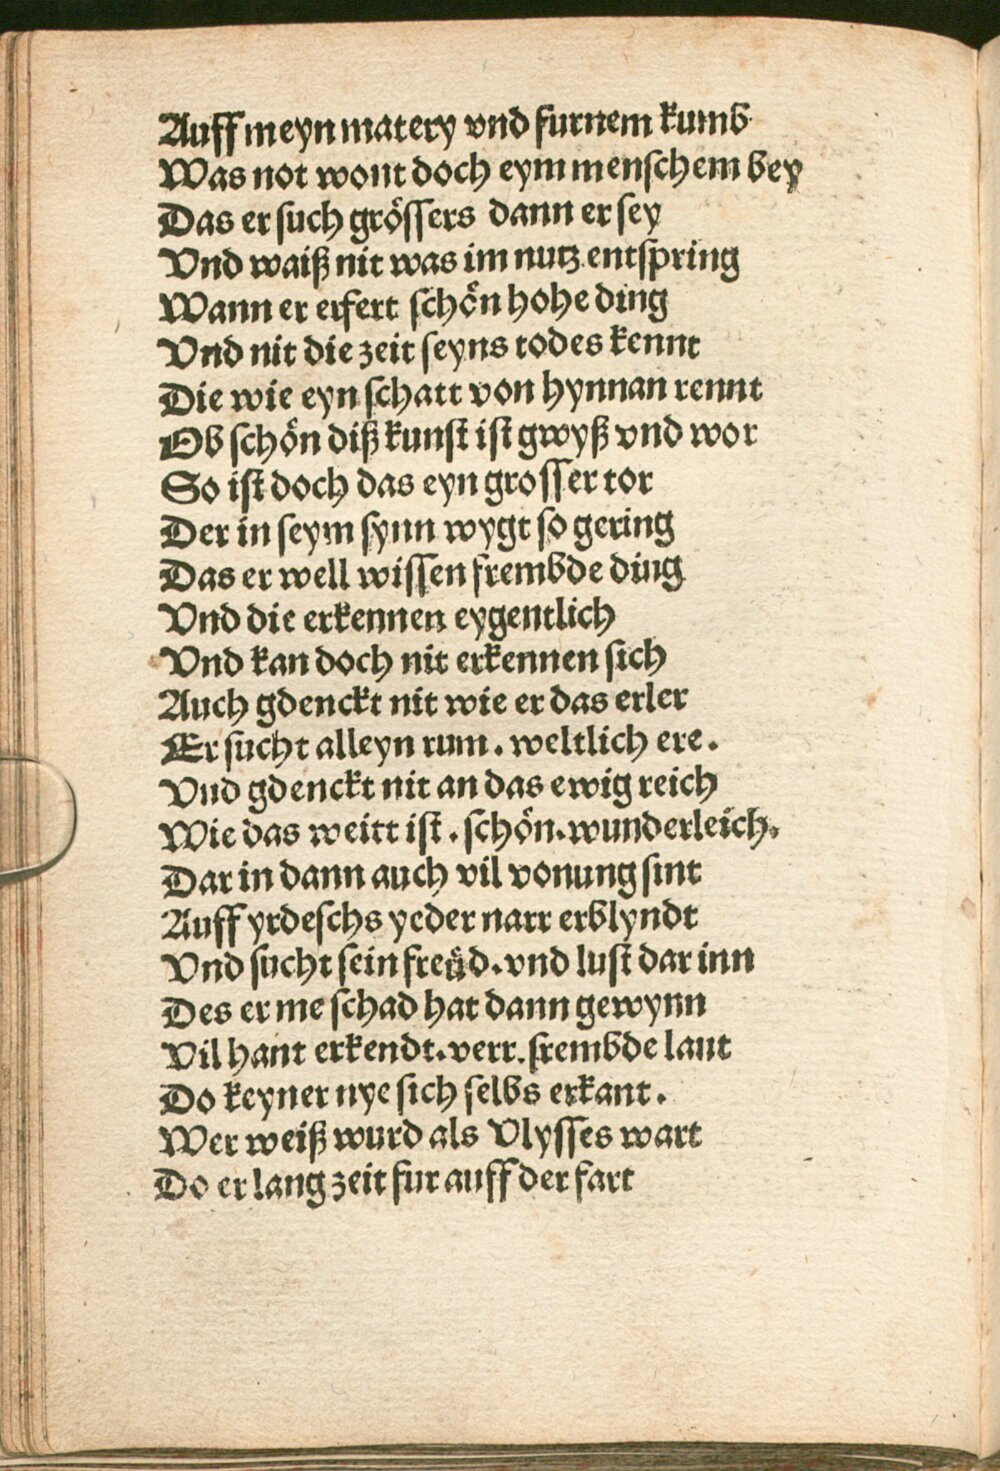 Auff meyn matery vnd furnem kumb
Was not wont doch eym menschem bey
Das er such grössers dann er sey
Vnd waiß nit was im nutz entspring
Wann er erfert schön hohe ding
Vnd nit die zeit seyns todes kennt
Die wie eyn schatt von hynnan rennt
Ob schön diß kunst ist gwyß vnd wor
So ist doch das eyn grosser tor
Der in seym synn wygt so gering
Das er well wissen frembde ding
Vnd die erkennen eygentlich
Vnd kan doch nit erkennen sich
Auch gdenckt nit wie er das erler
Er sucht alleyn rum . weltlich ere .
Vnd gdenckt nit an das ewig reich
Wie das weitt ist . schön . wunderleich .
Dar in dann auch vil vonung sint
Auff yrdeschs yeder narr erblyndt
Vnd sucht sein freüd . vnd lust dar inn
Des er me schad hat dann gewynn
Vil hant erkendt . verr . frembde laut
Do keyner nye sich selbs erkant .
Wer weiß wurd als Vlysses wart
Do er lang zeit fur auff der fart